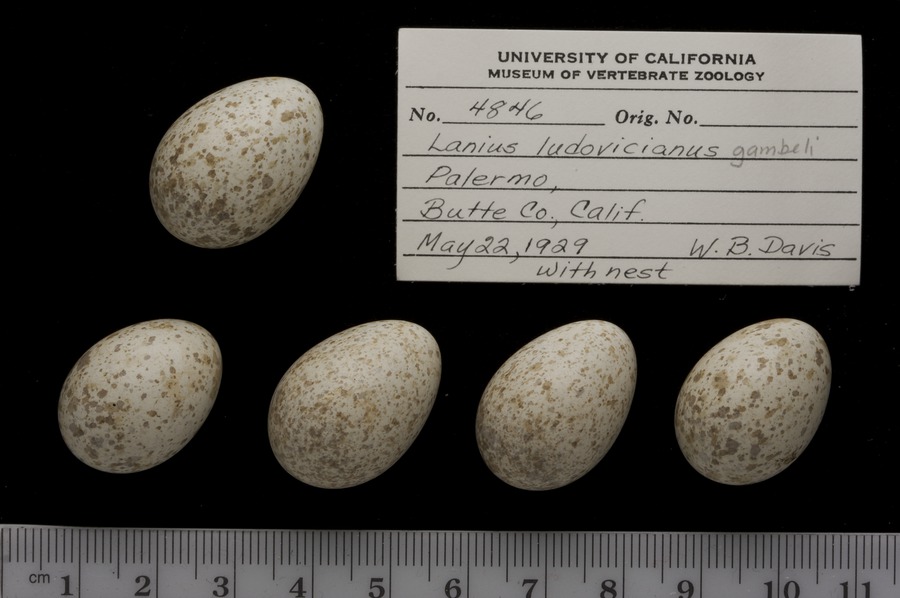 UNIVERSITY OF CALIFORNIA
MUSEUM OF VERTEBRATE ZOOLOGY
No. 4846 Orig. No.
Lanius ludovicianus gambeli
Palermo,
Butte Co., Calif.
May 22, 1929 W. B. Davis
with nest
cm 1 2 3 4 5 6 7 8 9 10 11